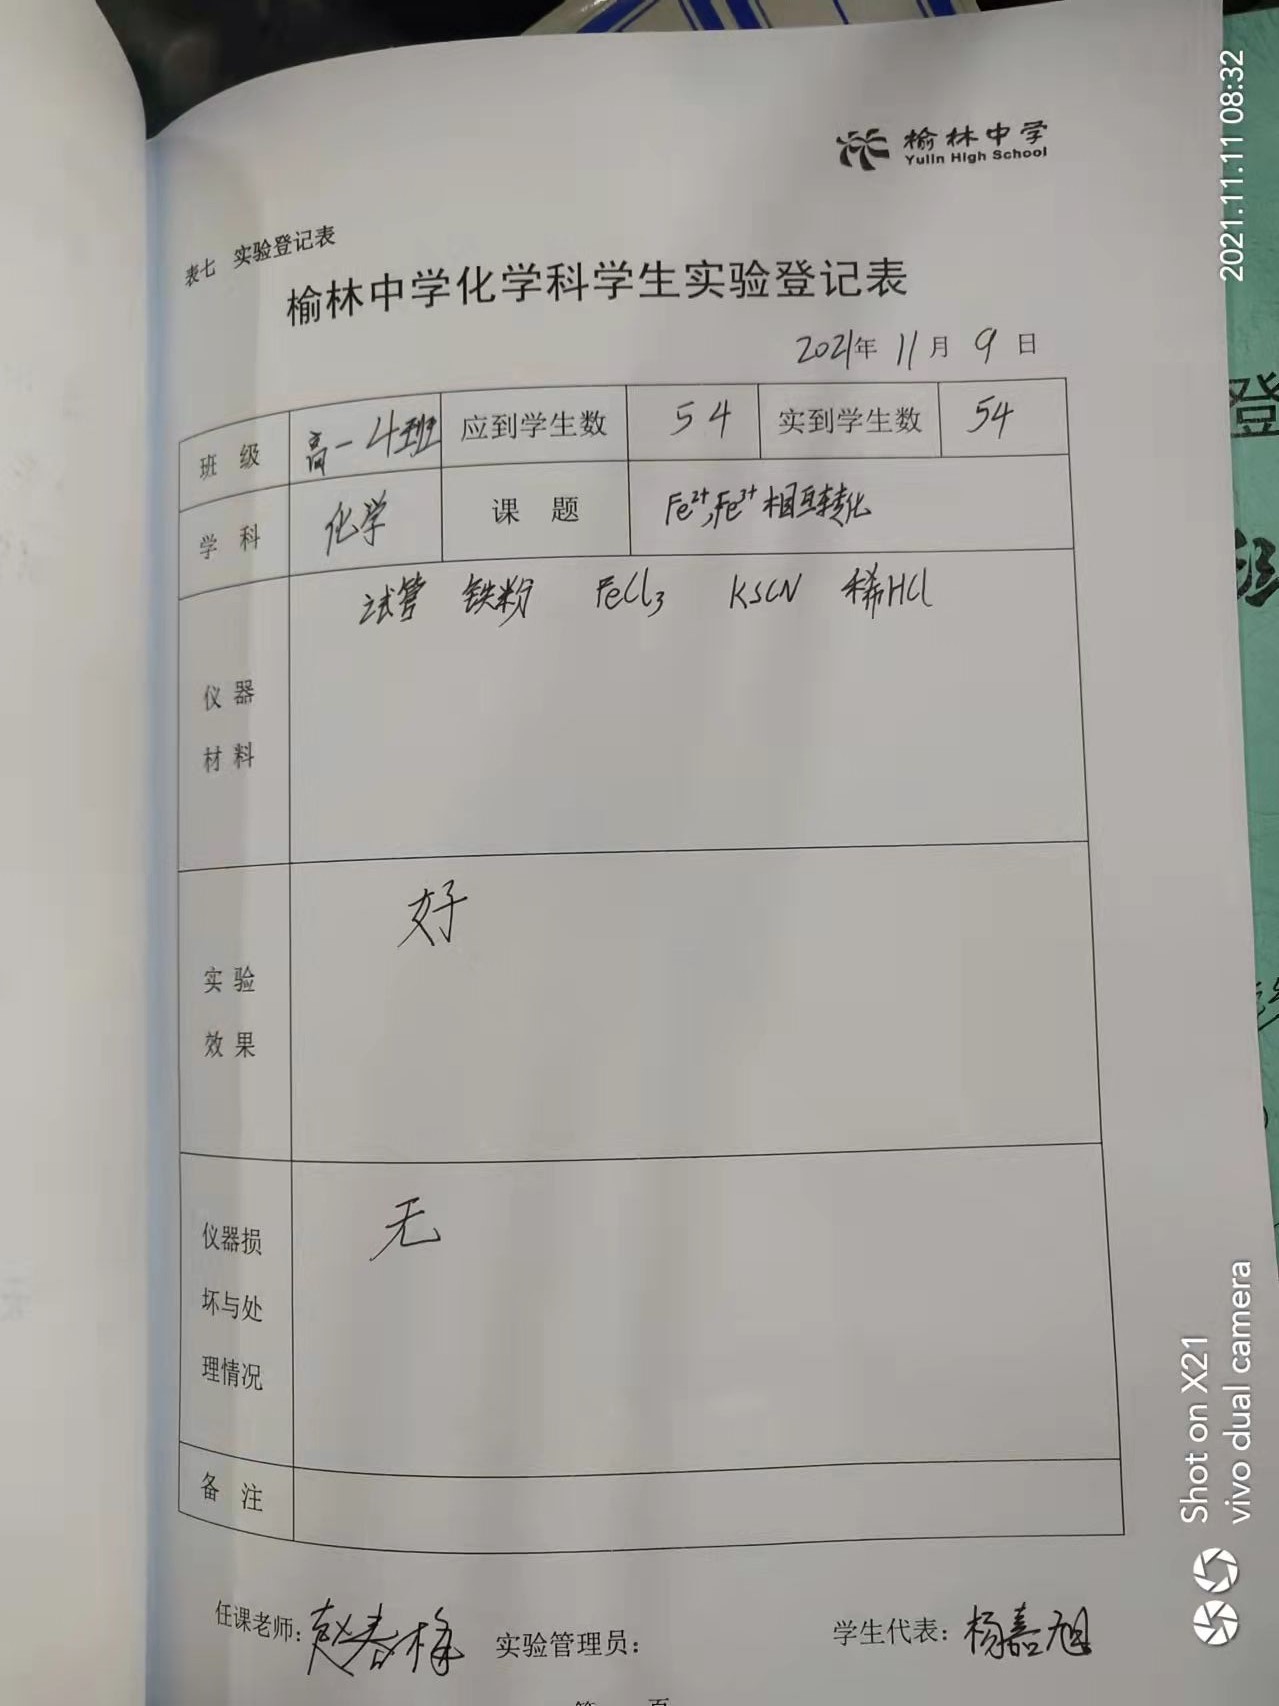 榆林中学
Yulin High School
表七 实验登记表
榆林中学化学科学生实验登记表
2021年 11月 9日
班 级 高一4班 应到学生数 54 实到学生数 54
学 科 化学 课 题 Fe²⁺,Fe³⁺相互转化
试管 铁粉 FeCl₃ KSCN 稀HCl
仪 器
材 料
好
实 验
效 果
无
仪器损
坏与处
理情况
备 注
任课老师: 赵春 实验管理员: 学生代表: 杨嘉旭
第 页
2021.11.11 08:32
Shot on X21
vivo dual camera
登